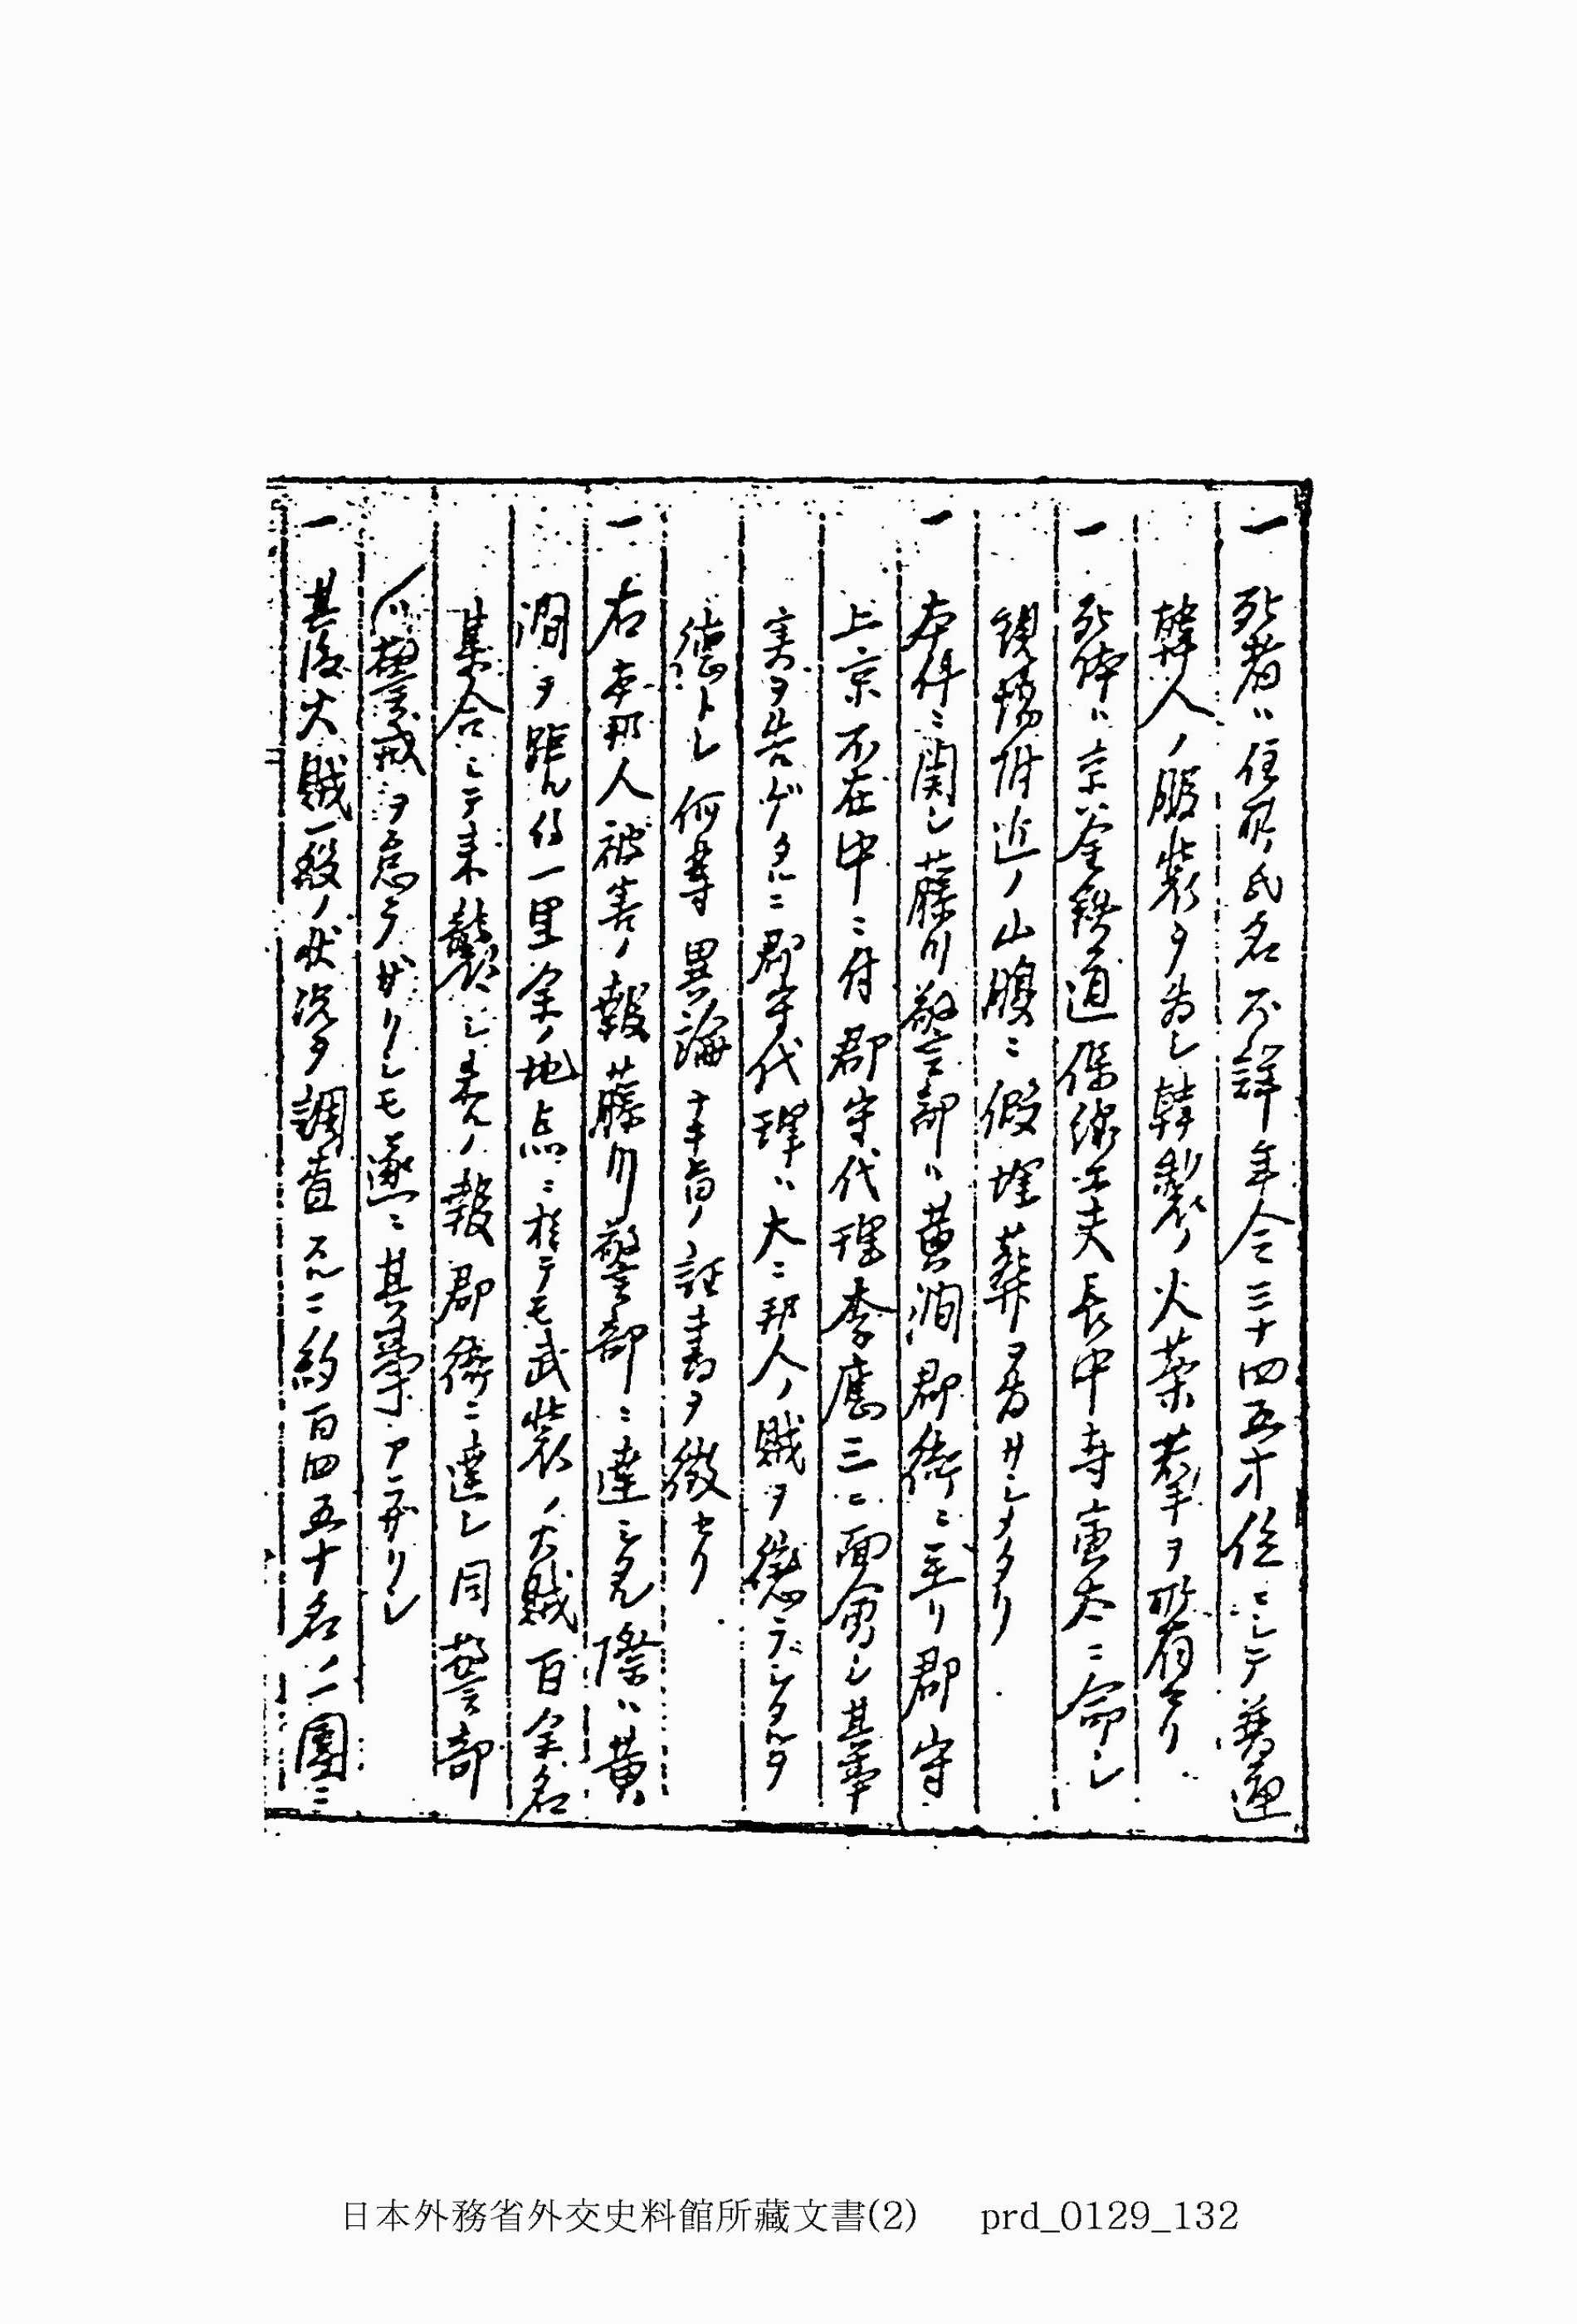 一 死者ハ住所氏名不詳年令三十四五才位ニシテ普通
韓人ノ服装ヲ為シ韓製ノ火薬若干ヲ所有セリ
一 死体ハ京釜鉄道保線工夫長中寺寅太ニ命シ
現場附近ノ山腹ニ假埋葬ヲ為サシメタリ
一 本件ニ関シ藤川警部ハ黄澗郡衙ニ至リ郡守
上京不在中ニ付郡守代理李應三ニ面会シ其事
実ヲ告ゲタルニ郡守代理ハ大ニ邦人ノ賊ヲ懲ラシタルヲ
徳トシ何等異論ナキ旨ノ証書ヲ徴セリ
一 右本邦人被害ノ報藤川警部ニ達シタル際ハ黄
澗ヲ距ル約一里余ノ地点ニ於テモ武装ノ火賊百余名
集合シテ来襲シ来ルノ報郡衙ニ達シ同警部
ハ警戒ヲ怠ラザリシモ遂ニ其事アラザリシ
一 其後火賊一般ノ状況ヲ調査スルニ約百四五十名ノ一團ニ
日本外務省外交史料館所藏文書(2) prd_0129_132